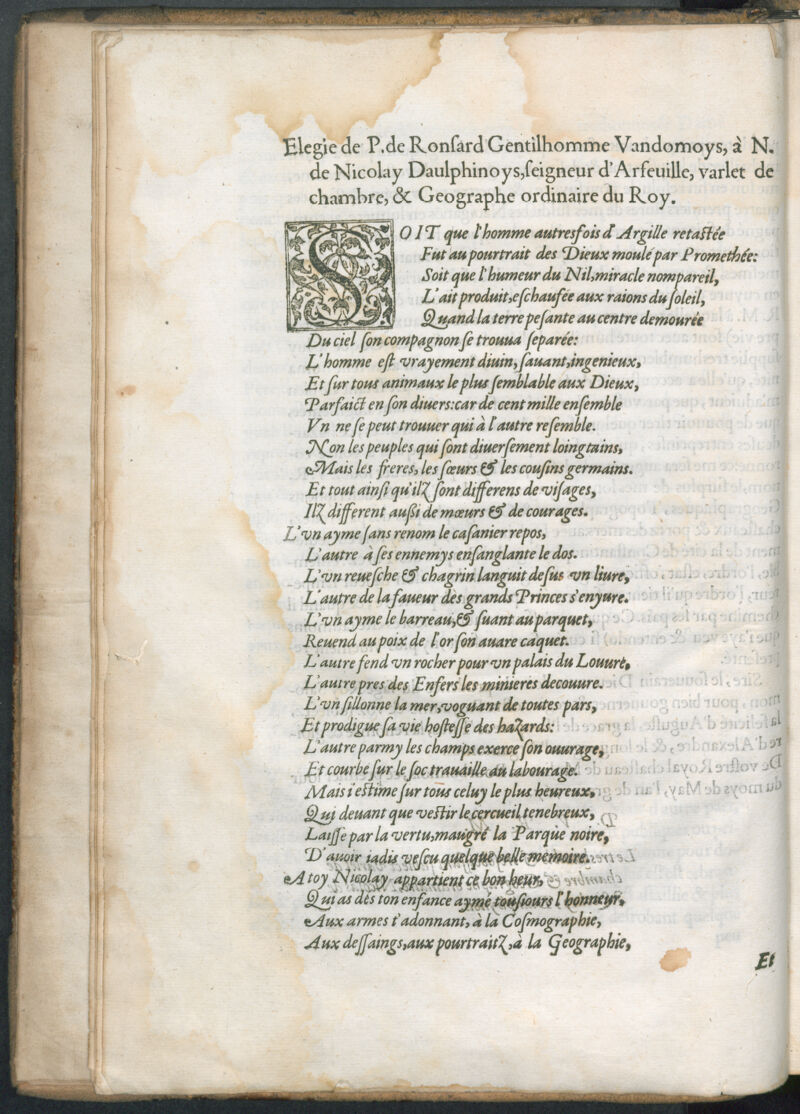 Elegie de P. de Ronſard Gentilhomme Vandomoys, à N.
de Nicolay Daulphinoys, ſeigneur d'Arfeuille, varlet de
chambre, & Geographe ordinaire du Roy.
SOIT que l'homme autresfois d'Argille retaſtée
Fut au pourtrait des Dieux moulé par Promethée:
Soit que l'humeur du Nil, miracle nompareil,
L'ait produit, eſchaufée aux raions du ſoleil,
Quand la terre peſante au centre demourée
Du ciel ſon compagnon ſe trouua ſeparée:
L'homme eſt vrayement diuin, ſauant, ingenieux,
Et ſur tous animaux le plus ſemblable aux Dieux,
Parfaict en ſon diuers: car de cent mille enſemble
Vn ne ſe peut trouuer qui à l'autre reſemble.
Non les peuples qui ſont diuerſement loingtains,
Mais les freres, les ſœurs & les couſins germains.
Et tout ainſi qu'ilz ſont differens de viſages,
Ilz different außi de mœurs & de courages.
L'vn ayme ſans renom le caſanier repos,
L'autre à ſes ennemys enſanglante le dos.
L'vn reueſche & chagrin languit deſus vn liure,
L'autre de la faueur des grands Princes s'enyure.
L'vn ayme le barreau, & ſuant au parquet,
Reuend au poix de l'or ſon auare caquet.
L'autre fend vn rocher pour vn palais du Louure,
L'autre pres des Enfers les minieres decouure.
L'vn ſillonne la mer, voguant de toutes pars,
Et prodigue ſa vie hoſteſſe des hazards:
L'autre parmy les champs exerce ſon ouurage,
Et courbe ſur le ſoc trauaille au labourage.
Mais i'eſtime ſur tous celuy le plus heureux,
Qui deuant que veſtir le cercueil tenebreux,
Laiſſe par la vertu, maugré la Parque noire,
D'auoir iadis veſcu quelque belle memoire.
A toy Nicolay appartient ce bon heur,
Qui as dés ton enfance aymé touſiours l'honneur,
Aux armes t'adonnant, à la Coſmographie,
Aux deſſaings, aux pourtraitz, à la Geographie,
Et